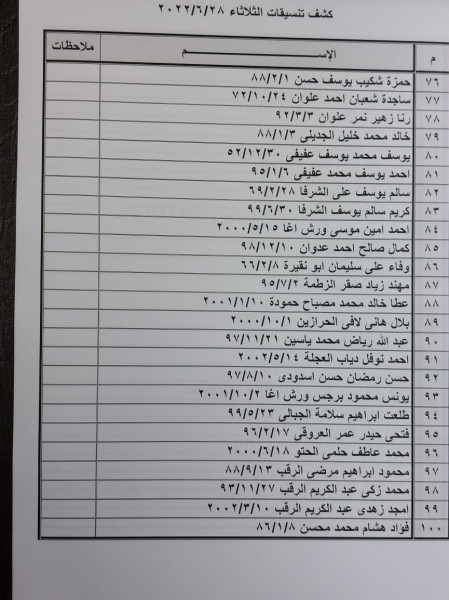 كشف تنسيقات الثلاثاء ٢٠٢٢/٦/٢٨
م الإســـــم ملاحظات
٧٦ حمزة شكيب يوسف حسن ٨٨/٢/١
٧٧ ساجدة شعبان احمد علوان ٧٢/١٠/٢٤
٧٨ رنا زهير نمر علوان ٩٢/٣/٣
٧٩ خالد محمد خليل الجديلى ٨٨/١/٣
٨٠ يوسف محمد يوسف عفيفى ٥٢/١٢/٣٠
٨١ احمد يوسف محمد عفيفى ٩٥/١/٦
٨٢ سالم يوسف على الشرفا ٦٩/٢/٢٨
٨٣ كريم سالم يوسف الشرفا ٩٩/٦/٣٠
٨٤ احمد امين موسى ورش اغا ٢٠٠٠/٥/١٥
٨٥ كمال صالح احمد عدوان ٩٨/١٢/١٠
٨٦ وفاء على سليمان ابو نقيرة ٦٦/٢/٨
٨٧ مهند زياد صقر الزطمة ٩٥/٧/٢
٨٨ عطا خالد محمد مصباح حمودة ٢٠٠١/١/١٠
٨٩ بلال هانى لافى الحرازين ٢٠٠٠/١٠/١
٩٠ عبد الله رياض محمد ياسين ٩٧/١١/٢١
٩١ احمد نوفل دياب العجلة ٢٠٠٢/٥/١٤
٩٢ حسن رمضان حسن اسدودى ٩٧/٨/١٠
٩٣ يونس محمود برجس ورش اغا ٢٠٠١/١٠/٢
٩٤ طلعت ابراهيم سلامة الجبالى ٩٩/٥/٢٣
٩٥ فتحى حيدر عمر العروقى ٩٦/٢/١٧
٩٦ محمد عاطف حلمى الحتو ٢٠٠٠/٦/١٨
٩٧ محمود ابراهيم مرضى الرقب ٨٨/٩/١٣
٩٨ محمد زكى عبد الكريم الرقب ٩٣/١١/٢٧
٩٩ امجد زهدى عبد الكريم الرقب ٢٠٠٢/٣/١٠
١٠٠ فؤاد هشام محمد محسن ٨٦/١/٨